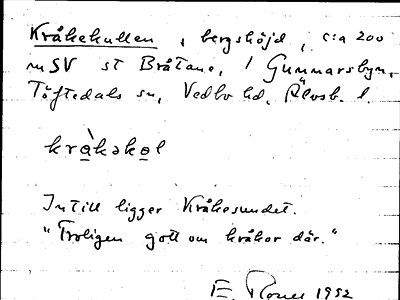 Kråkekullen, bergshöjd, c:a 200
m SV st Bråtane, / Gunnarsbyn,
Töftedals sn, Vedbo hd, Älvsb. l.
kràkəkol
Intill ligger Kråkesundet.
"Troligen gott om kråkor där."
E. 1952